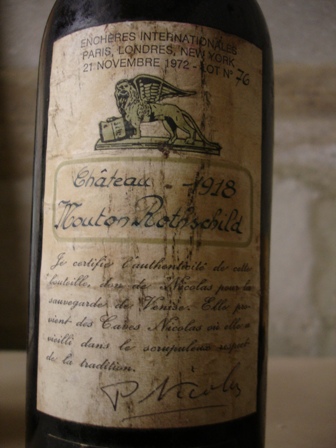 ENCHÈRES INTERNATIONALES
PARIS, LONDRES, NEW YORK
21 NOVEMBRE 1972 - LOT N° 76
Château - 1918
Mouton Rothschild
Je certifie l'authenticité de cette
bouteille, don de Nicolas pour la
sauvegarde de Venise. Elle pro
vient des Caves Nicolas où elle a
vieilli dans le scrupuleux respect
de la tradition.
P. Nicolas